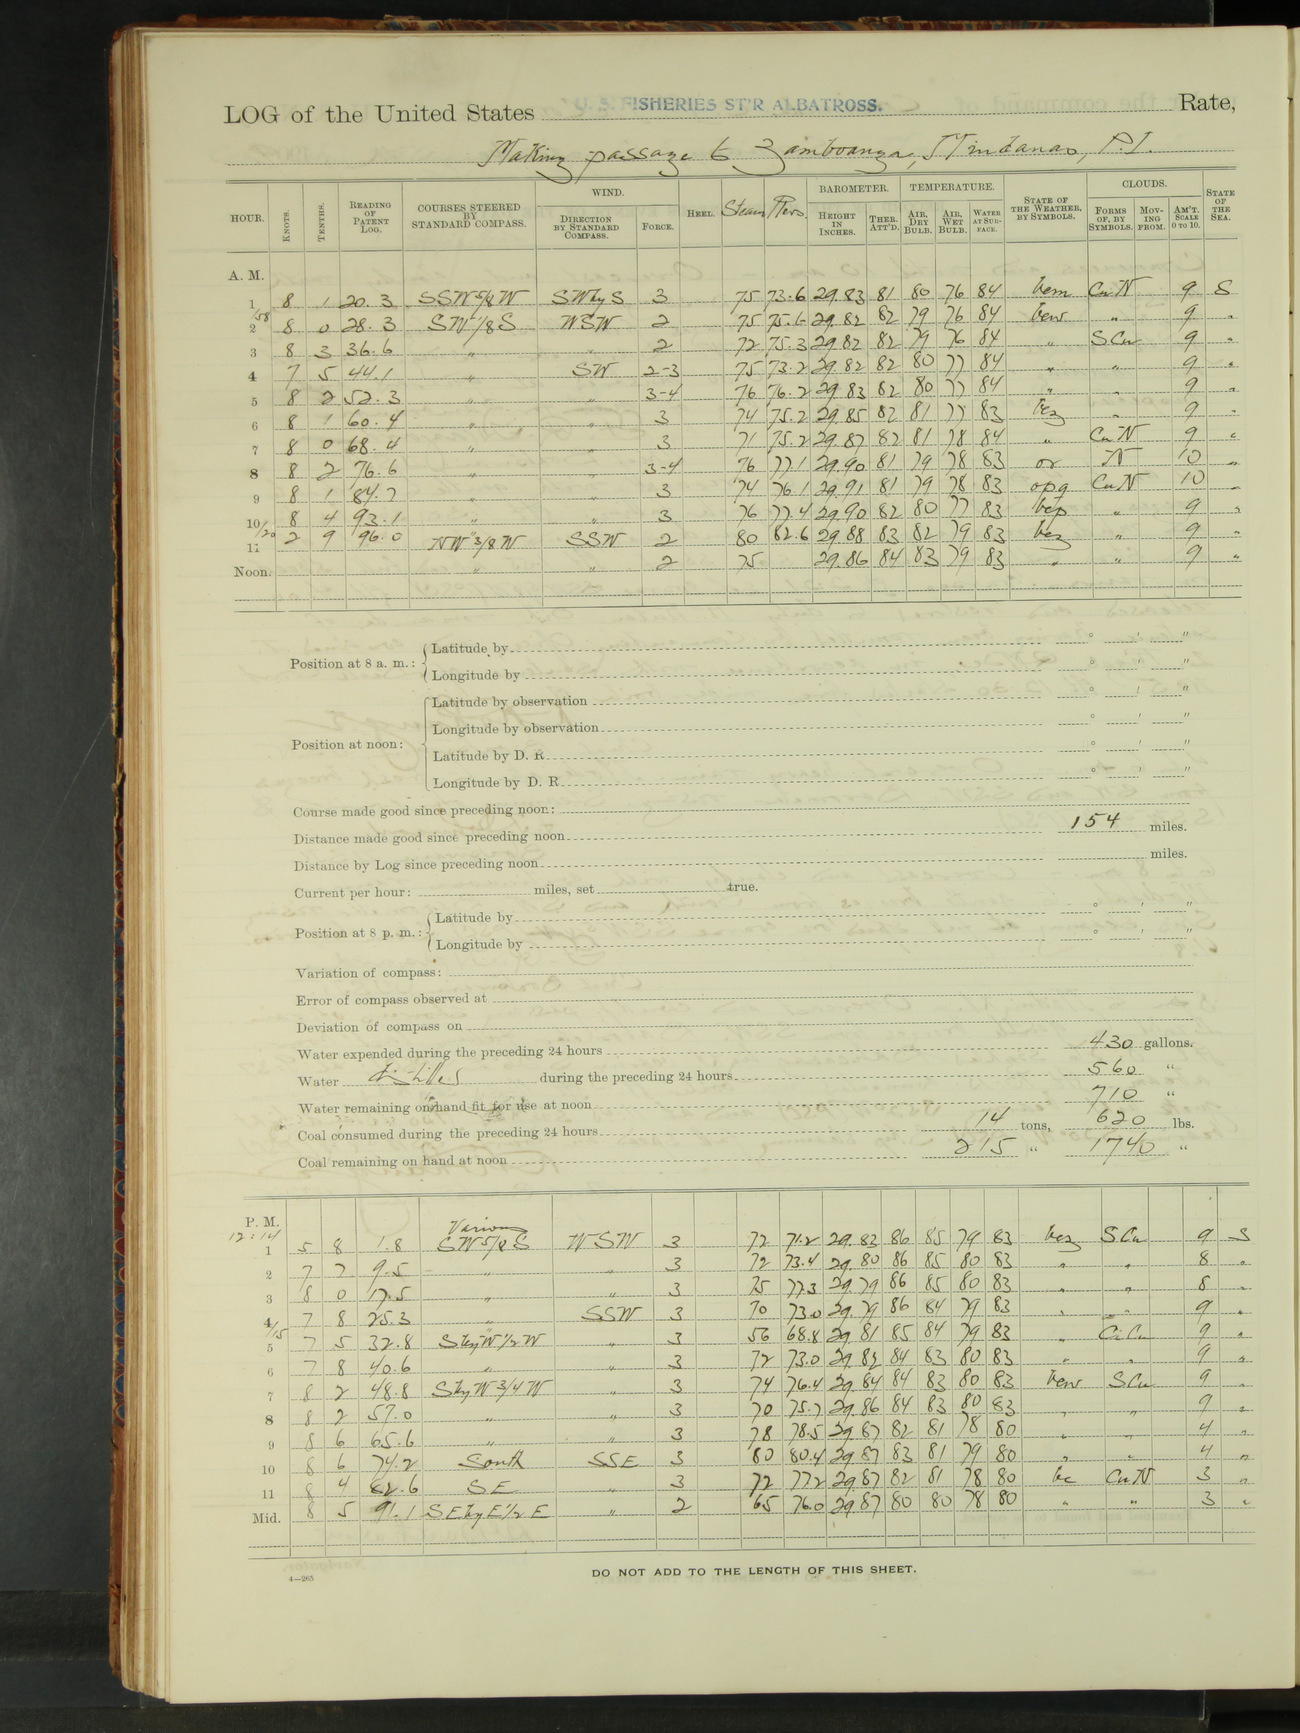 LOG of the United States U.S. FISHERIES ST'R ALBATROSS. Rate,
Making passage to Zamboanga, Mindanao, P.I.
HOUR. KNOTS. TENTHS. READING OF PATENT LOG. COURSES STEERED BY STANDARD COMPASS. WIND. DIRECTION BY STANDARD COMPASS. FORCE. HEEL. Steam Revs. BAROMETER. HEIGHT IN INCHES. THER. ATT'D. TEMPERATURE. AIR, DRY BULB. AIR, WET BULB. WATER AT SURFACE. STATE OF THE WEATHER, BY SYMBOLS. CLOUDS. FORMS OF, BY SYMBOLS. MOVING FROM. AM'T. SCALE 0 TO 10. STATE OF THE SEA.
A. M.
1 8 1 20.3 SSW 5/8 W SW by S 3 75 73.6 29.83 81 80 76 84 bcm CuN 9 S
1/58
2 8 0 28.3 SW 1/8 S WSW 2 75 75.6 29.82 82 79 76 84 bcw " 9 "
3 8 3 36.6 " " 2 72 75.3 29.82 82 79 76 84 " SCu 9 "
4 7 5 44.1 " SW 2-3 75 73.2 29.82 82 80 77 84 " " 9 "
5 8 2 52.3 " " 3-4 76 76.2 29.83 82 80 77 84 " " 9 "
6 8 1 60.4 " " 3 74 75.2 29.85 82 81 77 83 bcz " 9 "
7 8 0 68.4 " " 3 71 75.2 29.87 82 81 78 84 " CuN 9 "
8 8 2 76.6 " " 3-4 76 77.1 29.90 81 79 78 83 or N 10 "
9 8 1 84.7 " " 3 74 76.1 29.91 81 79 78 83 opq CuN 10 "
10 8 4 93.1 " " 3 76 77.4 29.90 82 80 77 83 bcp " 9 "
10/20
11 2 9 96.0 NW 3/8 W SSW 2 80 82.6 29.88 83 82 79 83 bcz " 9 "
Noon. " " 2 75 29.86 84 83 79 83 " " 9 "
Position at 8 a. m.: Latitude by ° ' "
Longitude by ° ' "
Position at noon: Latitude by observation ° ' "
Longitude by observation ° ' "
Latitude by D. R. ° ' "
Longitude by D. R. ° ' "
Course made good since preceding noon:
Distance made good since preceding noon 154 miles.
Distance by Log since preceding noon miles.
Current per hour: miles, set true.
Position at 8 p. m.: Latitude by ° ' "
Longitude by ° ' "
Variation of compass:
Error of compass observed at
Deviation of compass on
Water expended during the preceding 24 hours 430 gallons.
Water distilled during the preceding 24 hours 560 "
Water remaining on hand fit for use at noon 710 "
Coal consumed during the preceding 24 hours 14 tons, 620 lbs.
Coal remaining on hand at noon 215 " 1740 "
P. M.
12:14 Various
1 5 8 1.8 SW 5/8 S WSW 3 72 71.2 29.83 86 85 79 83 bcz SCu 9 S
2 7 7 9.5 " " 3 72 73.4 29.80 86 85 80 83 " " 8 "
3 8 0 17.5 " " 3 75 77.3 29.79 86 85 80 83 " " 8 "
4 7 8 25.3 " SSW 3 70 73.0 29.79 86 84 79 83 " " 9 "
4/15
5 7 5 32.8 S by W 1/2 W " 3 56 68.8 29.81 85 84 79 83 " CiCu 9 "
6 7 8 40.6 " " 3 72 73.0 29.82 84 83 80 83 " " 9 "
7 8 2 48.8 S by W 3/4 W " 3 74 76.4 29.84 84 83 80 83 bcw SCu 9 "
8 8 2 57.0 " " 3 70 75.7 29.86 84 83 80 83 " " 9 "
9 8 6 65.6 " " 3 78 78.5 29.87 82 81 78 80 " " 4 "
10 8 6 74.2 South SSE 3 80 80.4 29.87 83 81 79 80 " " 4 "
11 8 4 82.6 SE " 3 72 77.2 29.87 82 81 78 80 bc CuN 3 "
Mid. 8 5 91.1 SE by E 1/2 E " 2 65 76.0 29.87 80 80 78 80 " " 3 "
4—265
DO NOT ADD TO THE LENGTH OF THIS SHEET.